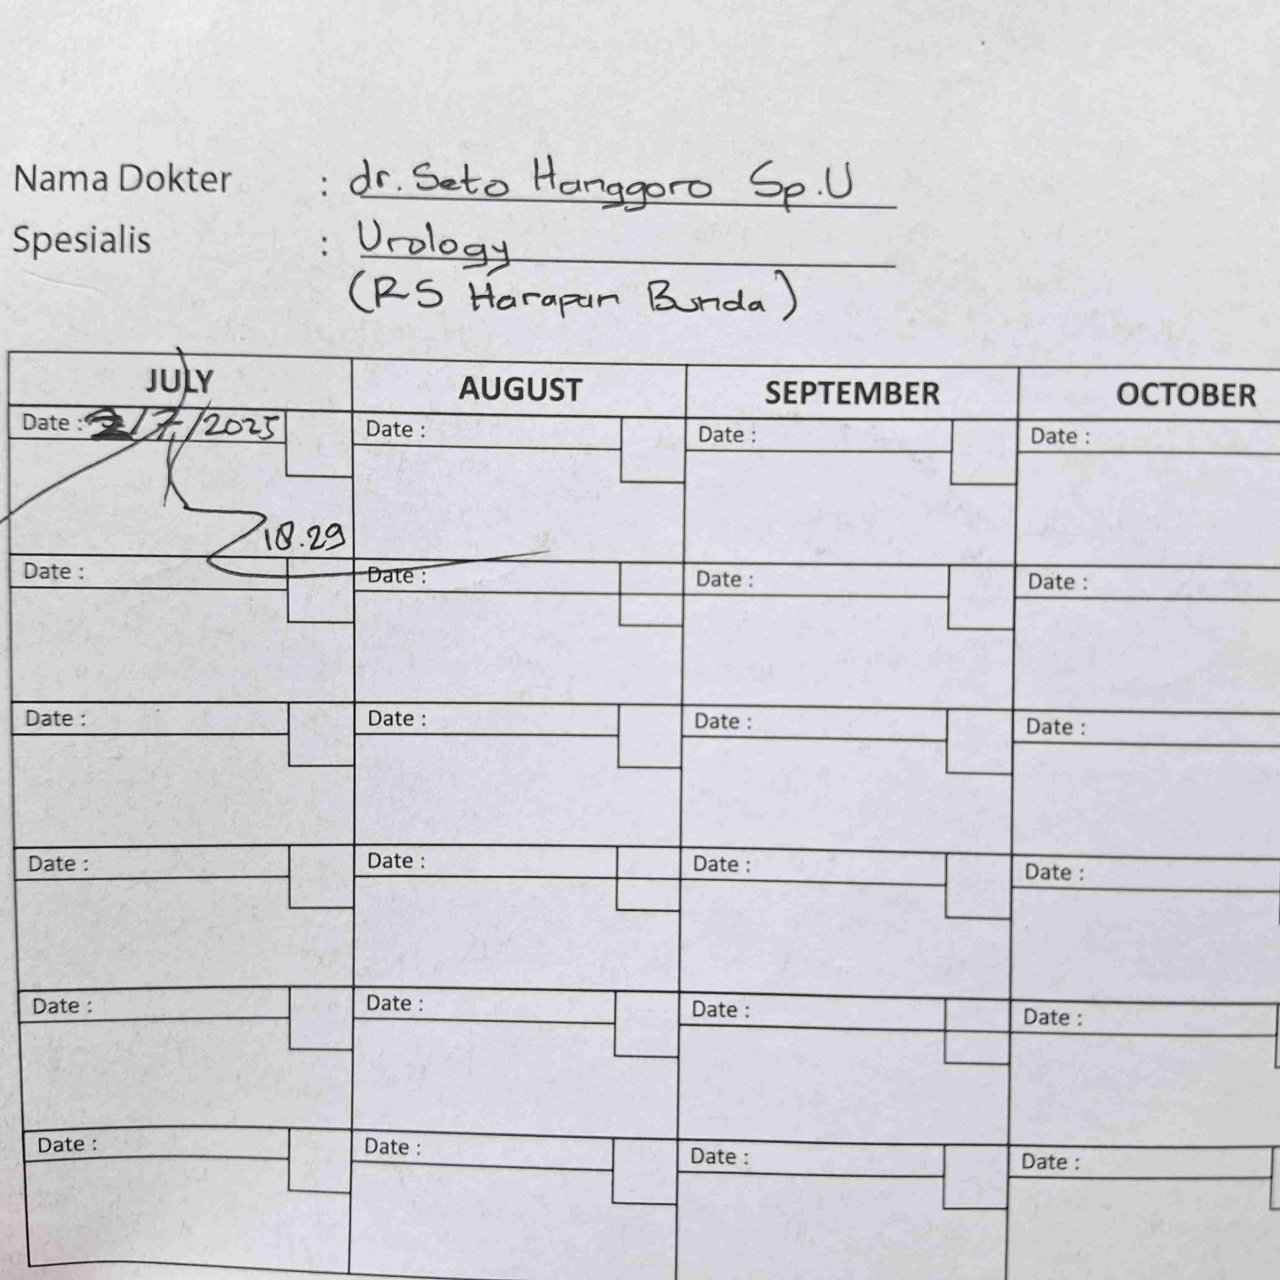 Nama Dokter : dr. Seto Hanggoro Sp.U
Spesialis : Urology
(RS Harapan Bunda)
JULY AUGUST SEPTEMBER OCTOBER
Date : 2/7/2025 Date : Date : Date :
18.29
Date : Date : Date : Date :
Date : Date : Date : Date :
Date : Date : Date : Date :
Date : Date : Date : Date :
Date : Date : Date : Date :